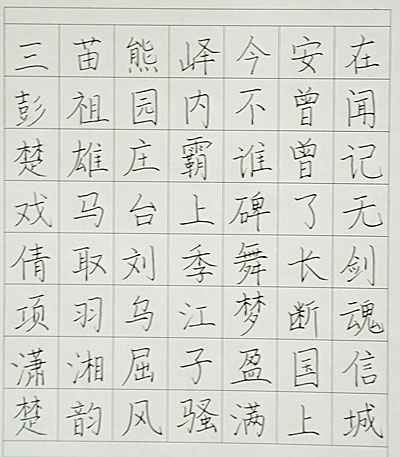 三苗熊峄今安在
彭祖园内不曾闻
楚雄庄霸谁曾记
戏马台上碑了无
倩取刘季舞长剑
项羽乌江梦断魂
潇湘屈子盈国信
楚韵风骚满上城